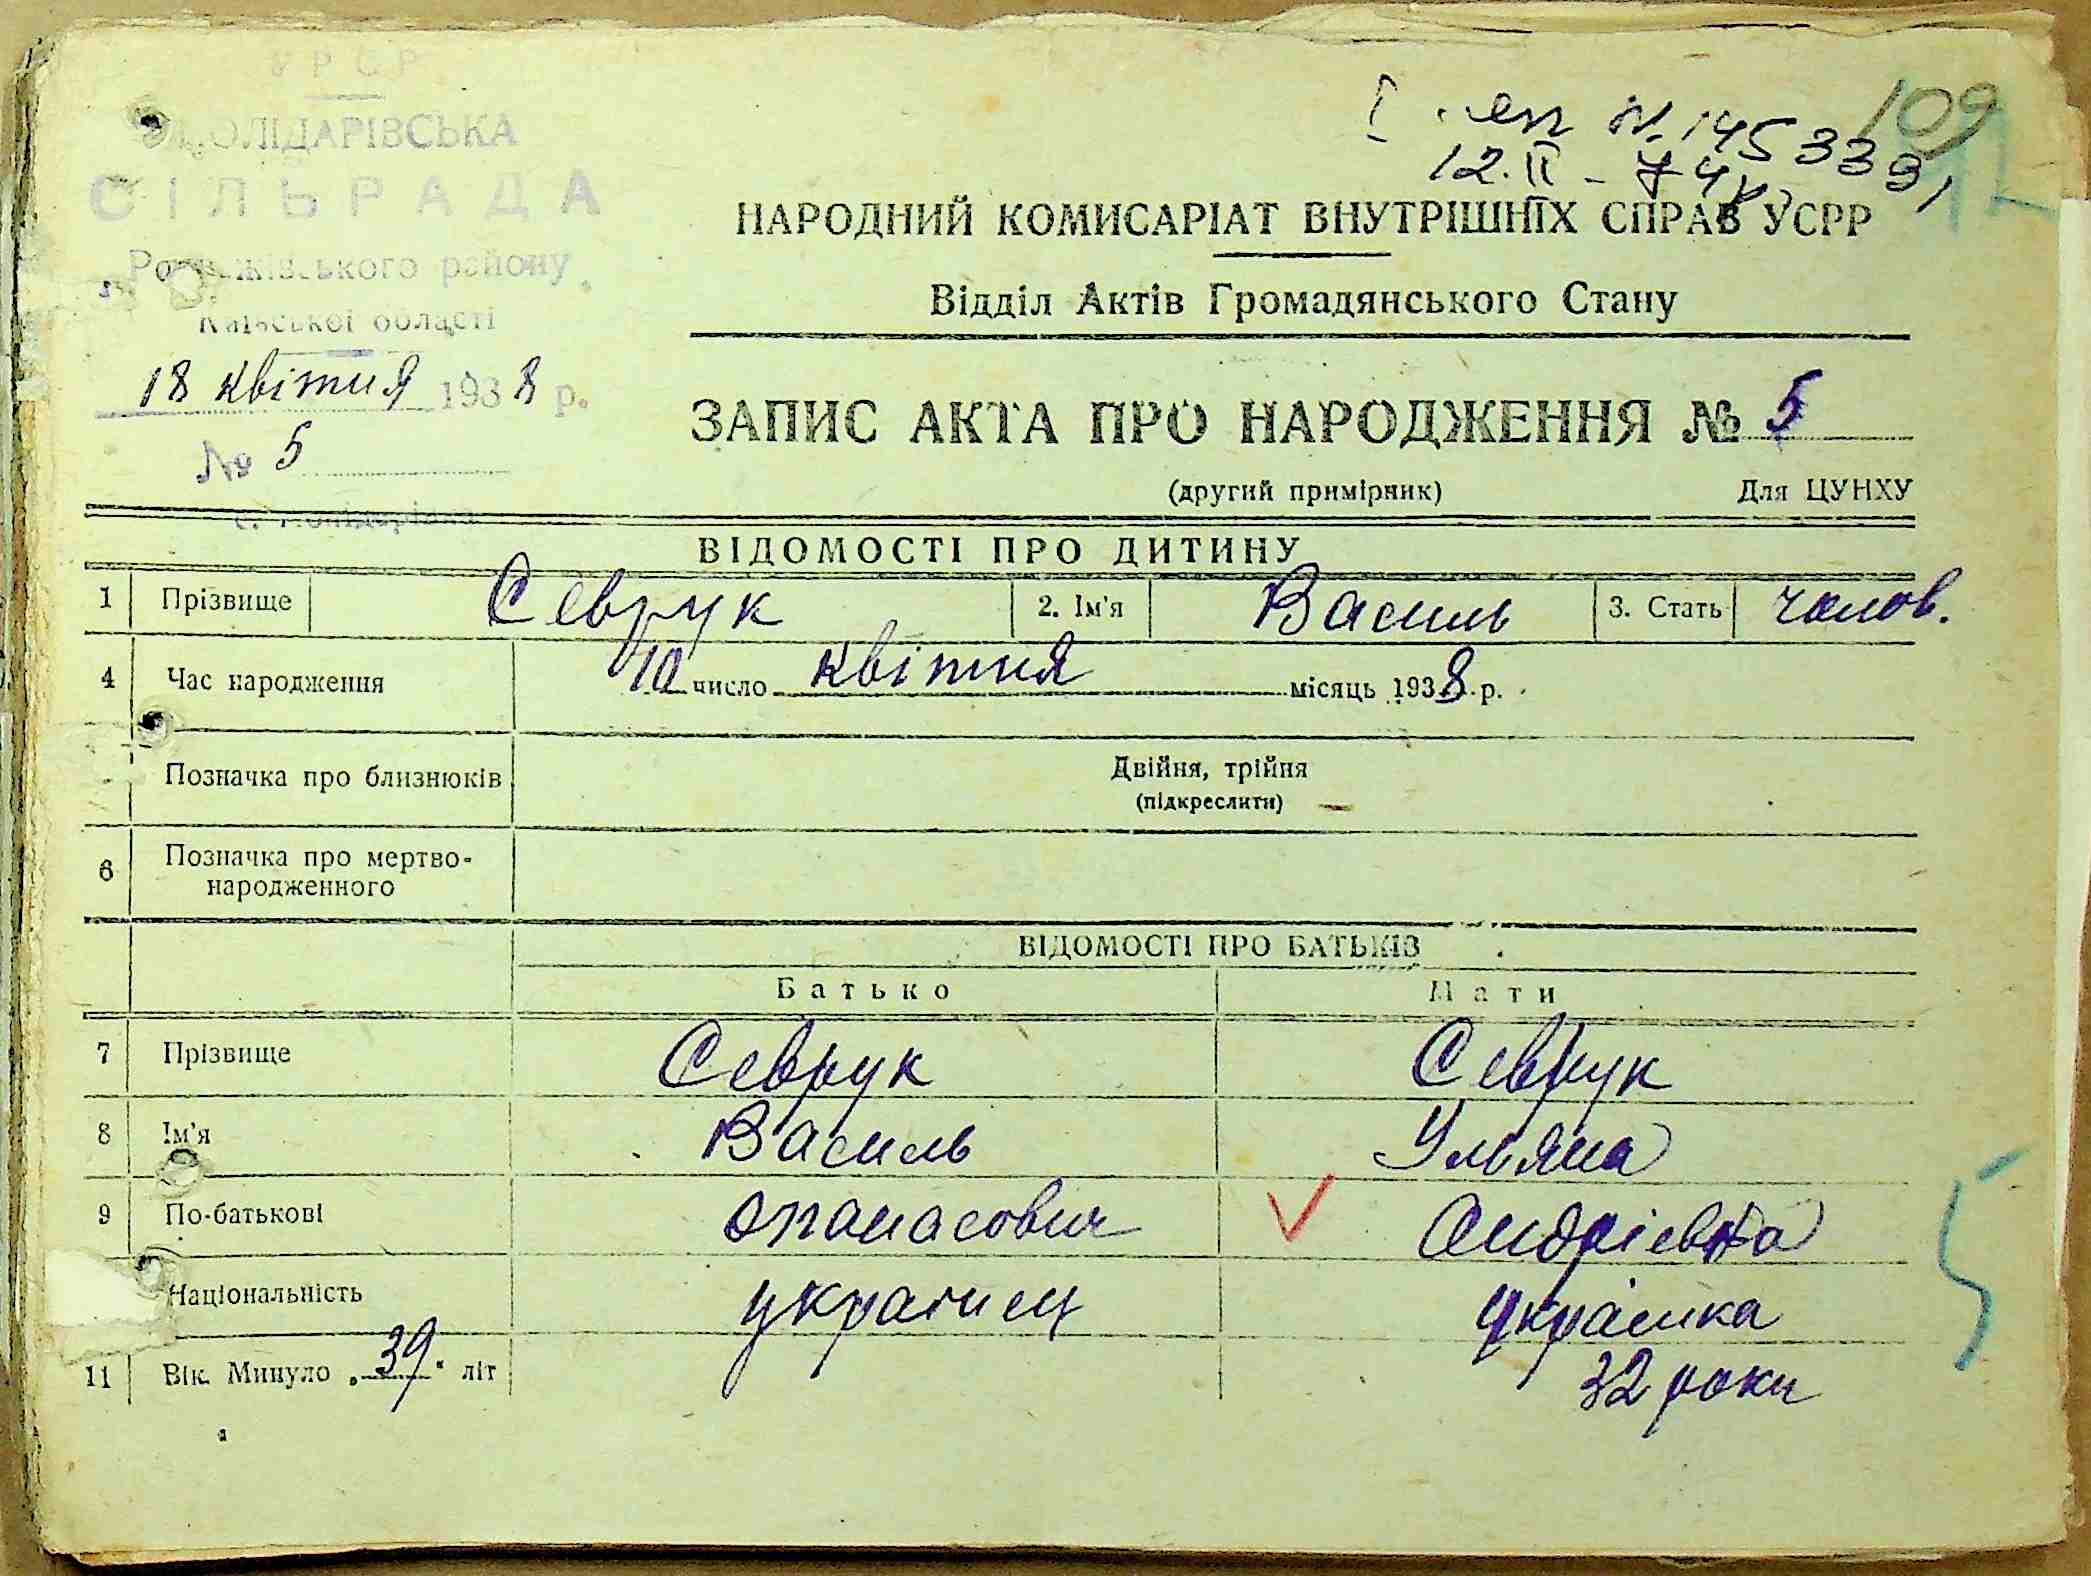 УРСР
СОЛІДАРІВСЬКА
СІЛЬРАДА
району
Київської області
18 квітня 1938 р.
№ 5
109
N. 145339
12.II - 74р
НАРОДНИЙ КОМИСАРІАТ ВНУТРІШНІХ СПРАВ УСРР
Відділ Актів Громадянського Стану
ЗАПИС АКТА ПРО НАРОДЖЕННЯ № 5
(другий примірник) Для ЦУНХУ
ВІДОМОСТІ ПРО ДИТИНУ
1 Прізвище Севрук 2. Ім'я Василь 3. Стать чолов.
4 Час народження 10 число квітня місяць 1938 р.
Позначка про близнюків Двійня, трійня
(підкреслити)
6 Позначка про мертво-
народженного
ВІДОМОСТІ ПРО БАТЬКІВ
Батько Мати
7 Прізвище Севрук Севрук
8 Ім'я Василь Ульяна
9 По-батькові Опанасович Андрієвна
Національність українец українка
11 Вік. Минуло „39“ літ 32 роки
5